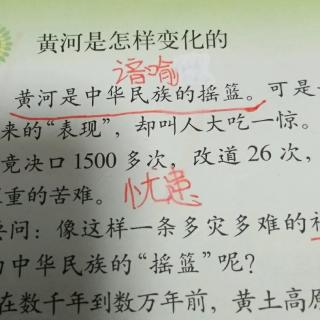 黄河是怎样变化的
谙喻
黄河是中华民族的摇篮。可是
来的“表现”，却叫人大吃一惊。
竟决口 1500 多次，改道 26 次，
重的苦难。 忧患
问：像这样一条多灾多难的
中华民族的“摇篮”呢？
在数千年到数万年前，黄土高原